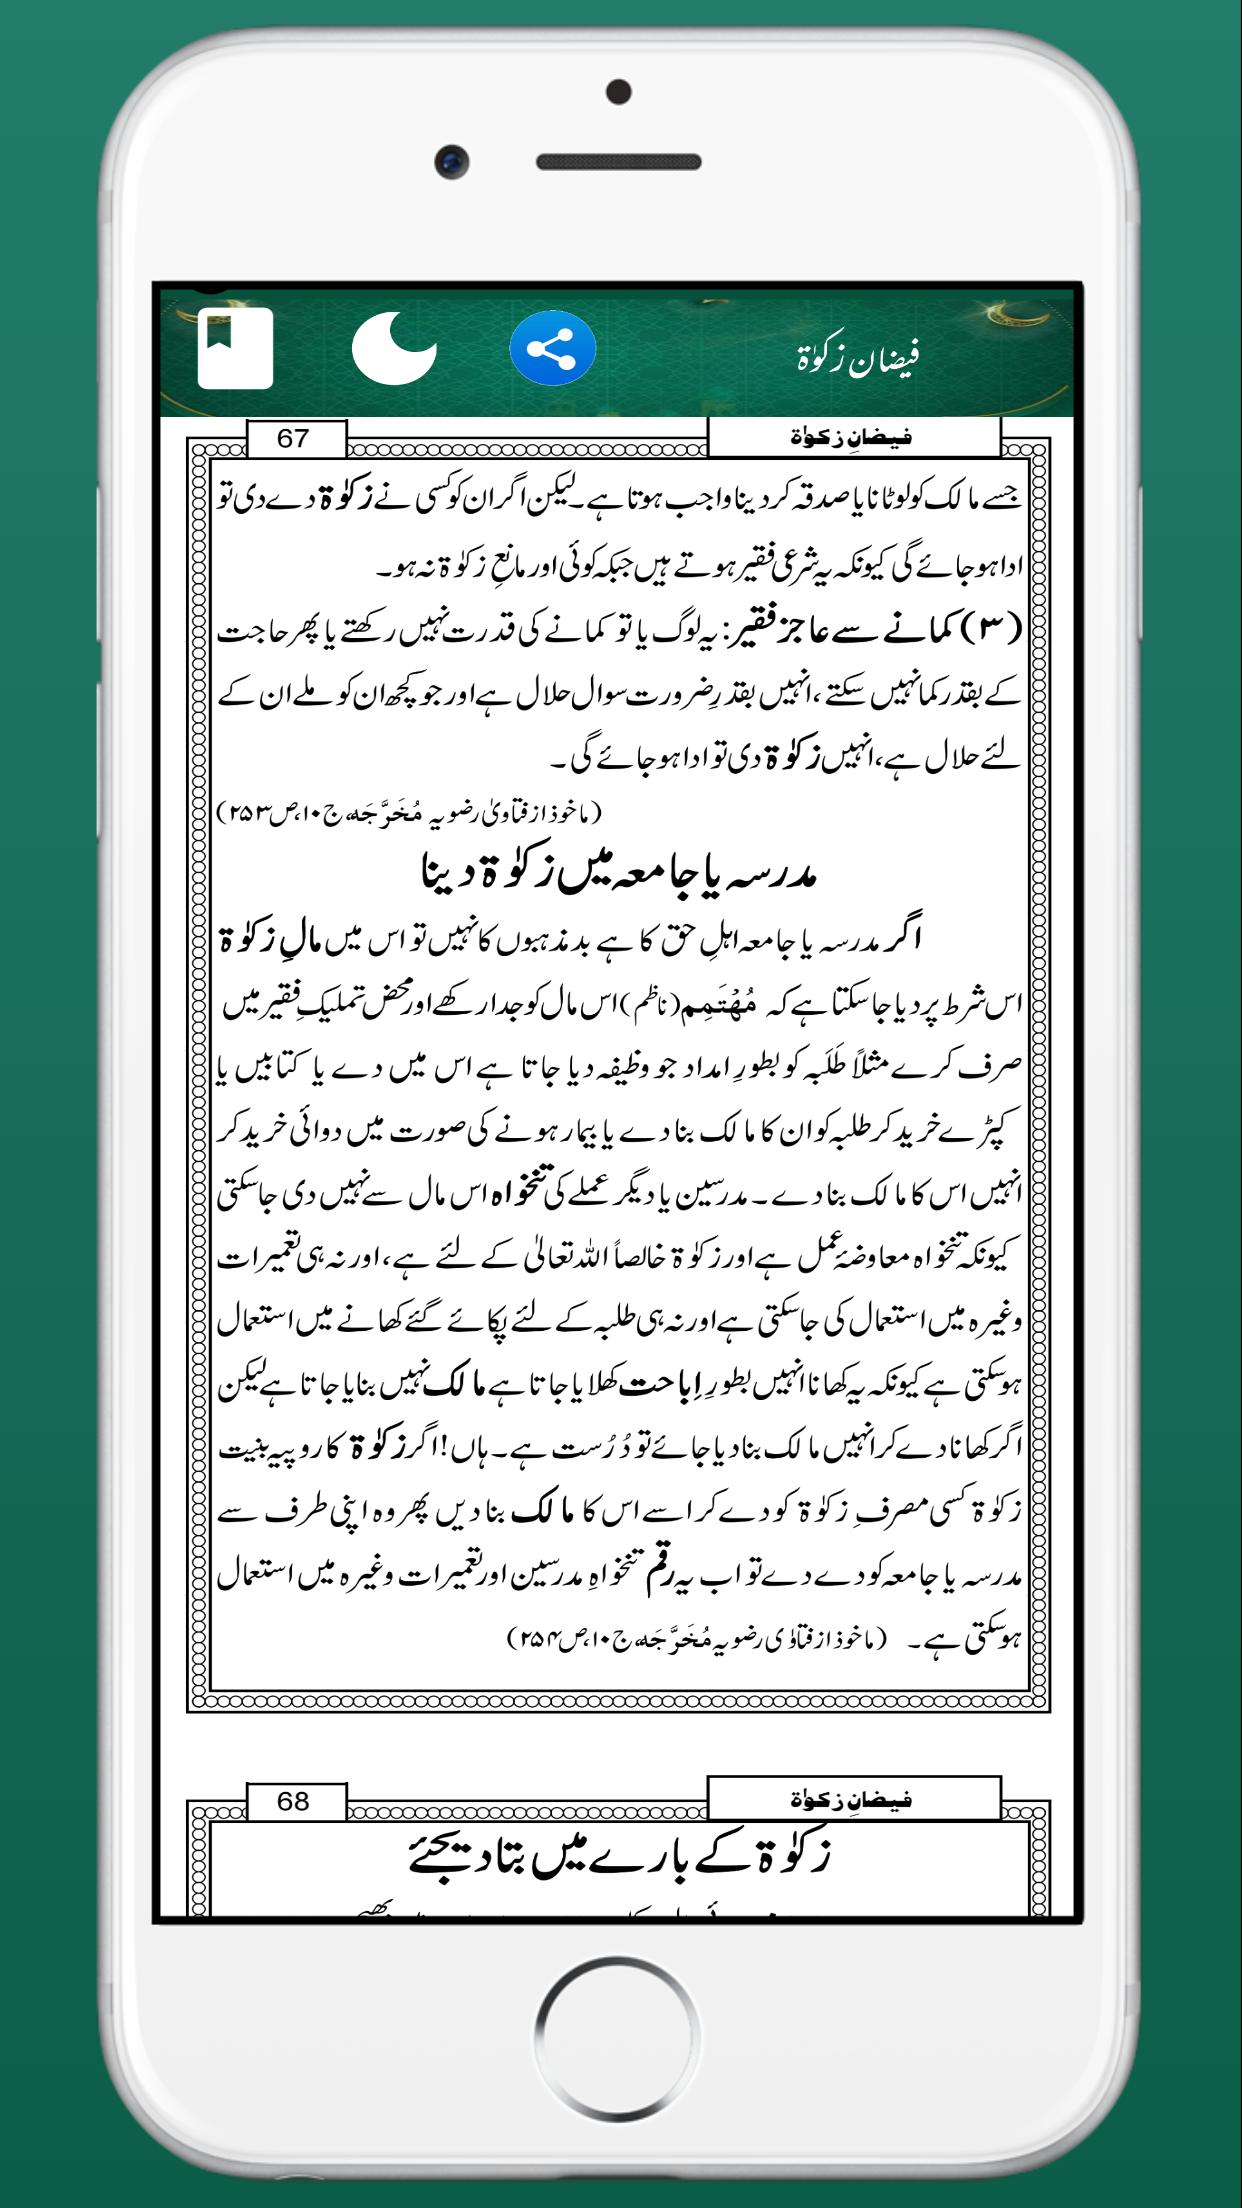 فیضان زکوٰۃ
67
فیضانِ زکوٰۃ
جسے مالک کو لوٹانا یا صدقہ کر دینا واجب ہوتا ہے۔ لیکن اگر ان کو کسی نے زکوٰۃ دے دی تو
ادا ہوجائے گی کیونکہ یہ شرعی فقیر ہوتے ہیں جبکہ کوئی اور مانعِ زکوٰۃ نہ ہو۔
(۳) کمانے سے عاجز فقیر: یہ لوگ یا تو کمانے کی قدرت نہیں رکھتے یا پھر حاجت
کے بقدر کما نہیں سکتے ،انہیں بقدرِ ضرورت سوال حلال ہے اور جو کچھ ان کو ملے ان کے
لئے حلال ہے، انہیں زکوٰۃ دی تو ادا ہوجائے گی۔
(ماخوذ از فتاویٰ رضویہ مُخَرَّجَہ، ج۱۰، ص۲۵۳)
مدرسہ یا جامعہ میں زکوٰۃ دینا
اگر مدرسہ یا جامعہ اہلِ حق کا ہے بدمذہبوں کا نہیں تو اس میں مالِ زکوٰۃ
اس شرط پر دیا جاسکتا ہے کہ مُہْتَمِم (ناظم) اس مال کو جدا رکھے اور محض تملیکِ فقیر میں
صرف کرے مثلاً طَلَبہ کو بطورِ امداد جو وظیفہ دیا جاتا ہے اس میں دے یا کتابیں یا
کپڑے خرید کر طلبہ کو ان کا مالک بنا دے یا بیمار ہونے کی صورت میں دوائی خرید کر
انہیں اس کا مالک بنا دے۔ مدرسین یا دیگر عملے کی تنخواہ اس مال سے نہیں دی جاسکتی
کیونکہ تنخواہ معاوضۂ عمل ہے اور زکوٰۃ خالصاً اللہ تعالیٰ کے لئے ہے، اور نہ ہی تعمیرات
وغیرہ میں استعمال کی جاسکتی ہے اور نہ ہی طلبہ کے لئے پکائے گئے کھانے میں استعمال
ہوسکتی ہے کیونکہ یہ کھانا انہیں بطورِ اِباحت کھلایا جاتا ہے مالک نہیں بنایا جاتا ہے لیکن
اگر کھانا دے کر انہیں مالک بنادیا جائے تو دُرُست ہے۔ ہاں! اگر زکوٰۃ کا روپیہ بنیت
زکوٰۃ کسی مصرفِ زکوٰۃ کو دے کر اسے اس کا مالک بنا دیں پھر وہ اپنی طرف سے
مدرسہ یا جامعہ کو دے دے تو اب یہ رقم تنخواہِ مدرسین اور تعمیرات وغیرہ میں استعمال
ہوسکتی ہے۔ (ماخوذ از فتاوٰی رضویہ مُخَرَّجَہ، ج۱۰، ص۲۵۴)
68
فیضانِ زکوٰۃ
زکوٰۃ کے بارے میں بتا دیجئے